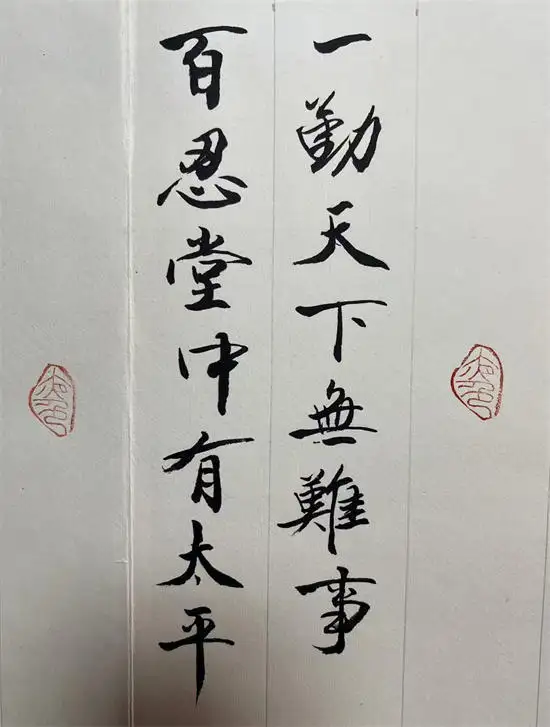 一勤天下無難事
百忍堂中有太平